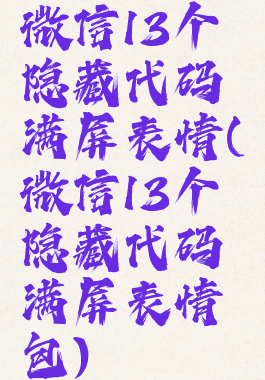 微信13个
隐藏代码
满屏表情(
微信13个
隐藏代码
满屏表情
包)